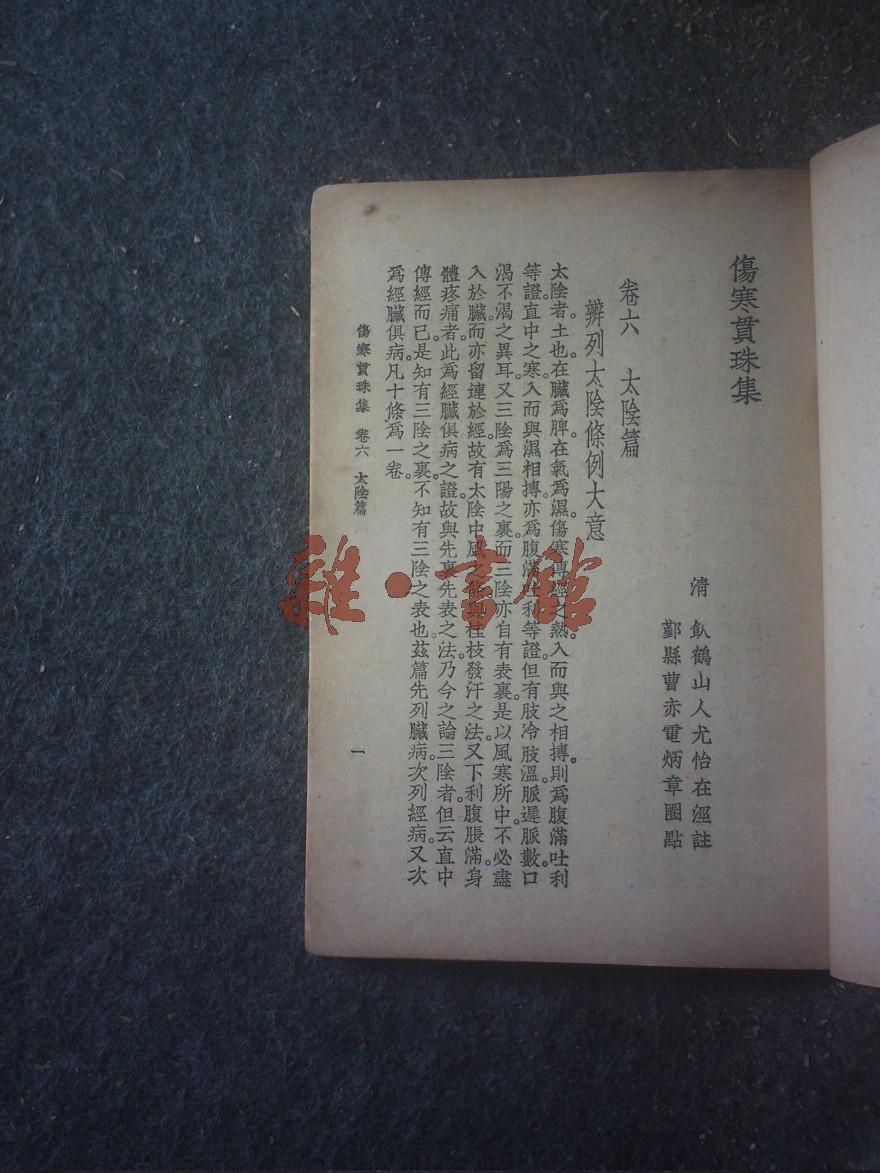 傷寒貫珠集
清 飲鶴山人尤怡在涇註
鄞縣曹赤電炳章圈點
卷六 太陰篇
辨列太陰條例大意
太陰者。土也。在臟爲脾。在氣爲濕。傷寒傳經之熱。入而與之相搏。則爲腹滿吐利
等證。直中之寒。入而與濕相搏。亦爲腹滿吐利等證。但有肢冷肢溫。脈遲脈數。口
渴不渴之異耳。又三陰爲三陽之裏。而三陰亦自有表裏。是以風寒所中。不必盡
入於臟。而亦留連於經。故有太陰中風之 與桂枝發汗之法。又下利腹脹滿。身
體疼痛者。此爲經臟俱病之證。故與先裏先表之法。乃今之論三陰者。但云直中
傳經而已。是知有三陰之裏。不知有三陰之表也。茲篇先列臟病。次列經病。又次
爲經臟俱病。凡十條。爲一卷。
傷寒貫珠集 卷六 太陰篇
一
雜·書館